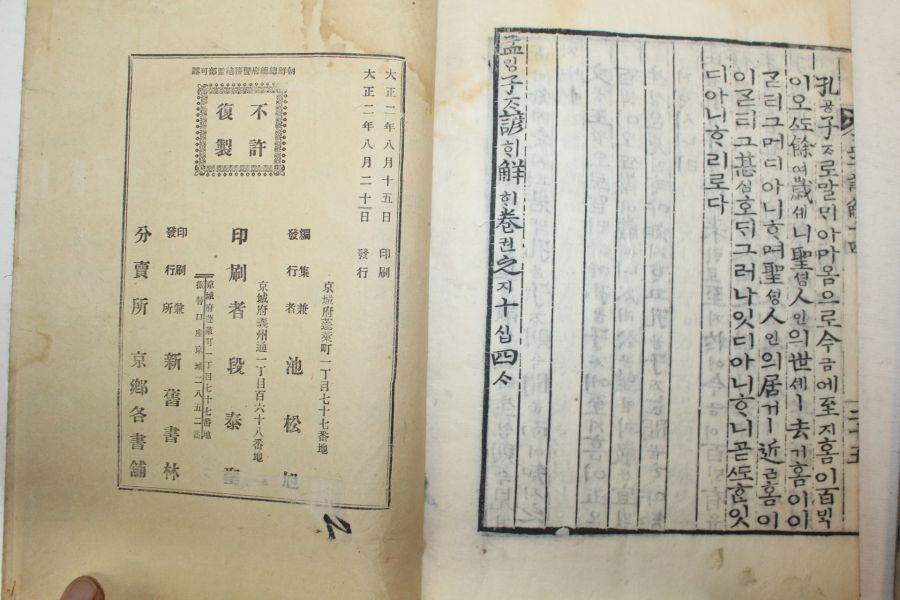 孔공子ᄌᆞ로말ᄆᆡ아마ᄋᆞᆷ으로今금에至지홈이百ᄇᆡᆨ
이오ᄯᅩ餘여歲셰니聖셩人인의世셰ㅣ去거홈이이
ᄀᆞᆮ티그머디아니ᄒᆞ며聖셩人인의居거ㅣ近근홈이
이ᄀᆞᆮ티그甚심호ᄃᆡ그러나잇디아니ᄒᆞ니곧ᄯᅩᄒᆞᆫ잇
디아니ᄒᆞ리로다
孟ᄆᆡᆼ子ᄌᆞ諺解卷권之지十십四ᄉᆞ
三十五
大正二年八月十五日 印刷
大正二年八月二十日 發行
朝鮮總督府警務總監部可認
不許
復製
京城府蓬萊町一丁目七十七番地
編集兼
發行者 池松旭
京城府義州通一丁目百六十八番地
印刷者 段泰
京城府蓬萊町一丁目七十七番地
振替口座京城二八五二番
印刷兼
發行所 新舊書林
分賣所 京鄉各書舖